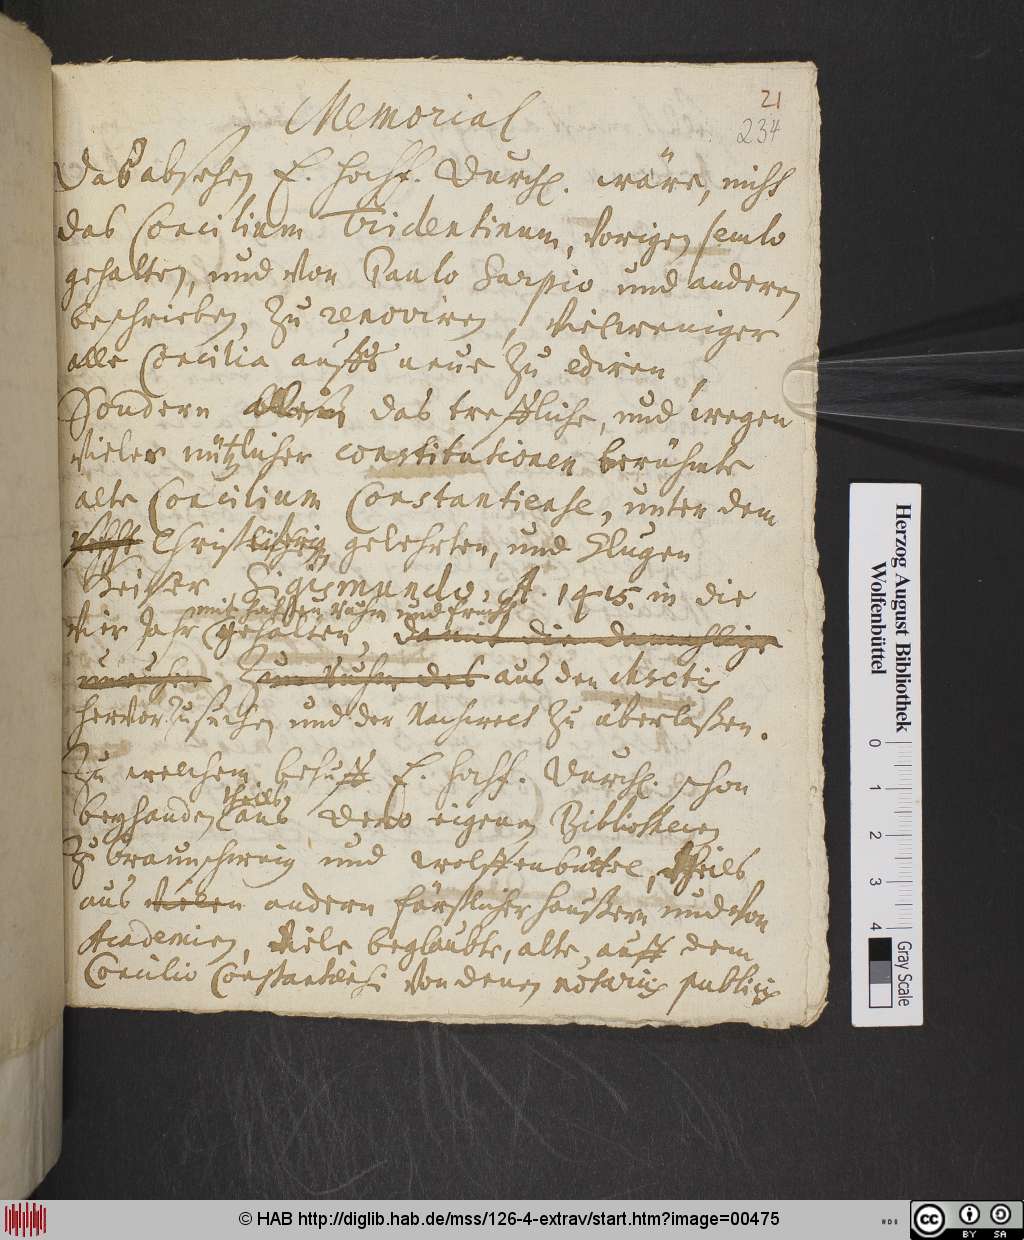 21
234
Memorial
Das absehen E. Hochf. Durchl. wäre, nicht
das Concilium Tridentinum, Vorigen seculo
gehalten, und von Paulo Sarpio und anderen
beschrieben, zu renoviren, Vielweniger
alle Concilia auffs neue zu ediren,
Sondern das treffliche, und wegen
Vieler nützlicher constitutionen berühmte
alte Concilium Constantiense, unter dem
Christlichen gelehrten, und Klugen
Keiser Sigismundo, A. 1415. in die
mit hohem Ruhm und frucht
vier Jahr gehalten, damit die damahlige
Zum Ruhm des aus den Actis
hervor zu suchen und der Nachwelt zu überlaßen.
Zu welchem behuff E. Hochf. Durchl. schon
theils
beyhanden aus Dero eigenen Bibliothecen
zu Braunschweig und Wolffenbüttel, theils
aus vielen andern fürstlichen Haußern und Von
Academien, Viele beglaubte, alte, auff dem
Concilio Constantiensi von denen notariis publicis
Herzog August Bibliothek
Wolfenbüttel
0 1 2 3 4
Gray Scale
© HAB http://diglib.hab.de/mss/126-4-extrav/start.htm?image=00475
cc BY SA